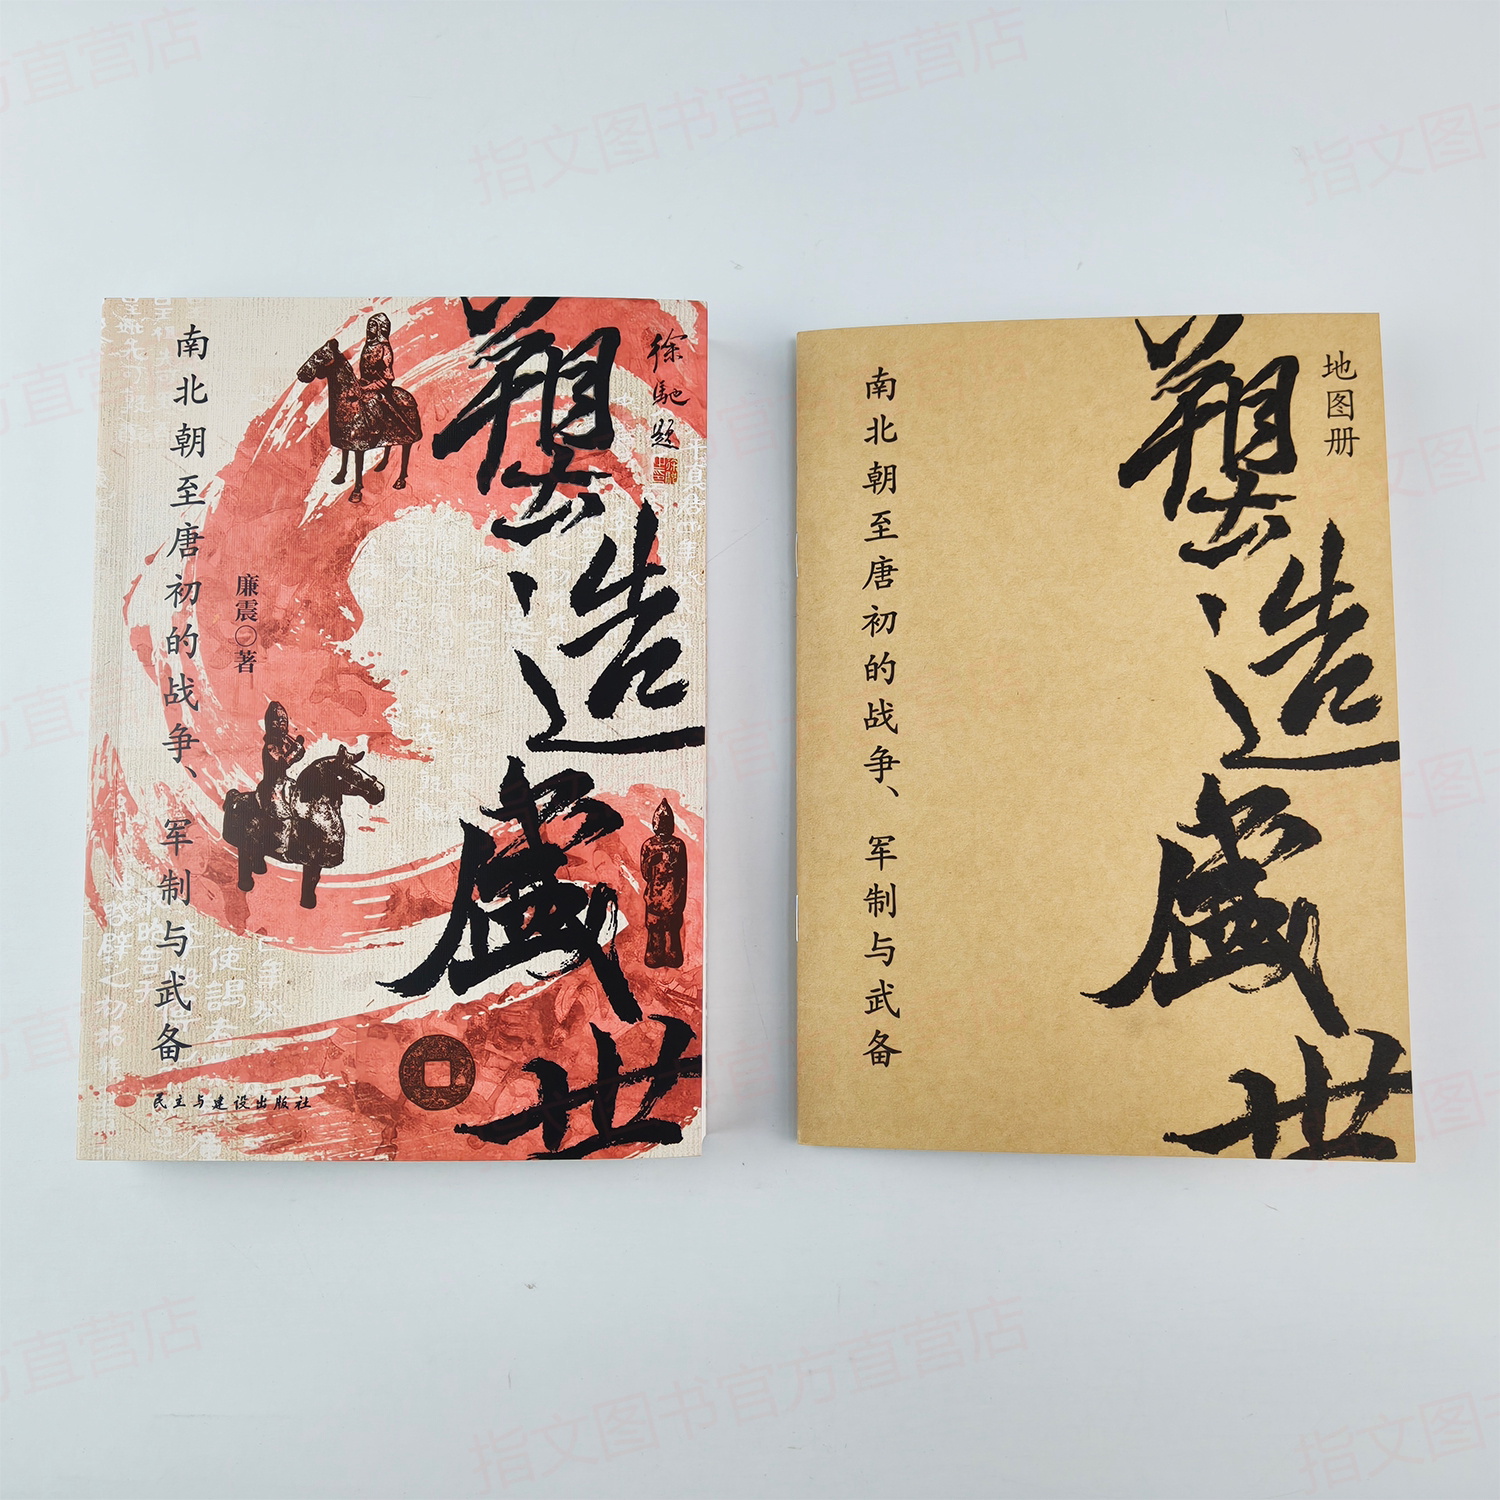 塑造盛世
徐驰题
南北朝至唐初的战争、军制与武备
廉震〇著
民主与建设出版社
塑造盛世
地图册
南北朝至唐初的战争、军制与武备
指文图书官方直营店
指文图书官方直营店